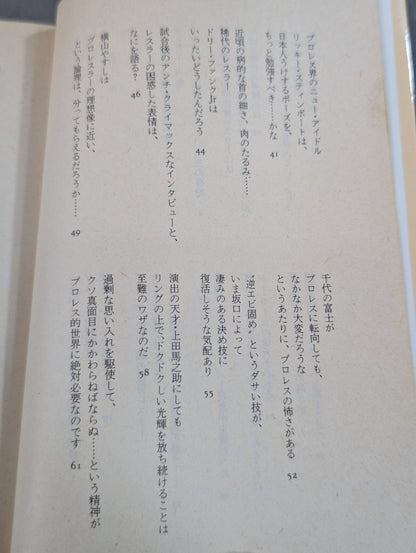 プロレス界のニュー・アイドル
リッキー・スティンボートは、
日本人うけするポーズを、
ちっと勉強すべき……かな
41
近頃の病的な首の細さ、肉のたるみ……
稀代のレスラー
ドリー・ファンクJrは
いったいどうしたんだろう
44
試合後のアンチ・クライマックスなインタビューと、
レスラーの困惑した表情は、
なにを語る？
46
横山やすしは
プロレスラーの理想像に近い、
という論理は、分ってもらえるだろうか……
49
千代の富士が
プロレスに転向しても、
なかなか大変だろうな
というあたりに、プロレスの怖さがある
52
“逆エビ固め”というダサい技が、
いま坂口によって
凄みのある決め技に
復活しそうな気配あり
55
演出の天才・上田馬之助にしても
リングの上で、ドクドクしい光輝を放ち続けることは
至難のワザなのだ
58
過剰な思い入れを駆使して、
クソ真面目にかかわらねばならぬ……という精神が
プロレス的世界に絶対必要なのです
61